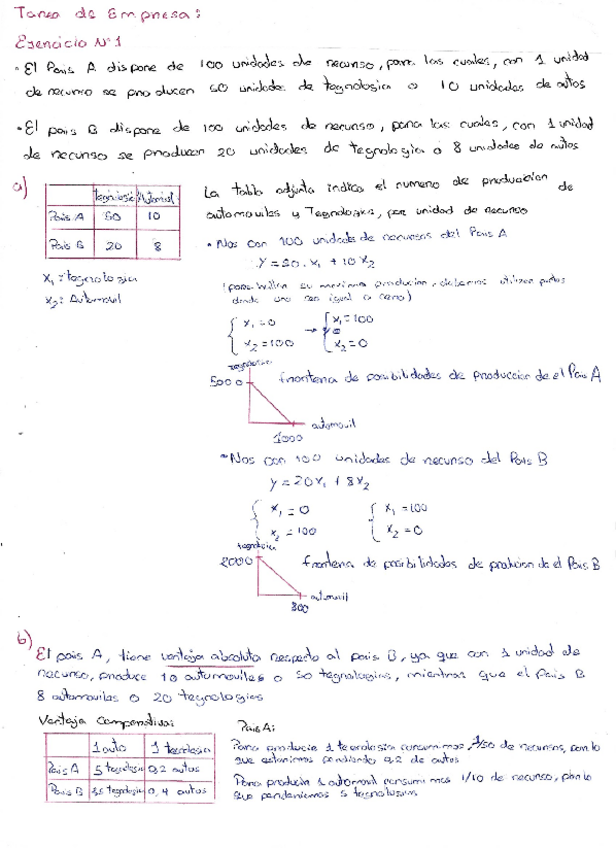 Tarea de Empresa:
Ejercicio N°1
• El Pais A dispone de 100 unidades de recurso, para las cuales, con 1 unidad
de recurso se producen 50 unidades de tegnologia o 10 unidades de autos
• El pais B dispone de 100 unidades de recurso, para las cuales, con 1 unidad
de recurso se producen 20 unidades de tegnologia ó 8 unidades de autos
a)
Tegnologia Automovil
Pais A 50 10
Pais B 20 8
X₁: tegnologia
X₂: Automovil
La tabla adjunta indica el numero de produccion de
automoviles y Tegnologia, por unidad de recurso
• Nos con 100 unidades de recursos del Pais A
Y = 50·X₁ + 10X₂
(para hallar su maxima producion, debemos utilizar puntos
donde uno sea igual a cero)
X₁ = 0
X₂ = 100
X₁ = 100
X₂ = 0
tegnologia
5000
frontera de posibilidades de produccion de el Pais A
automovil
1000
• Nos con 100 unidades de recurso del Pais B
y = 20X₁ + 8X₂
X₁ = 0
X₂ = 100
X₁ = 100
X₂ = 0
tegnologia
2000
frontera de posibilidades de de el Pais B
automovil
800
b)
El pais A, tiene ventaja absoluta respecto al pais B, ya que con 1 unidad de
recurso, produce 10 automoviles o 50 tegnologias, mientras que el Pais B
8 automoviles o 20 tegnologias
Ventaja Comparativa:
1 auto 1 tecnologia
Pais A 5 tegnologia 0,2 autos
Pais B 2,5 tegnologia 0,4 autos
Pais A:
Para producir 1 tecnologia consumimos 1/50 de recursos, por lo
que estariamos perdiendo 0,2 de autos
Para producir 1 automovil consumimos 1/10 de recurso, por lo
que perderiamos 5 tegnologias